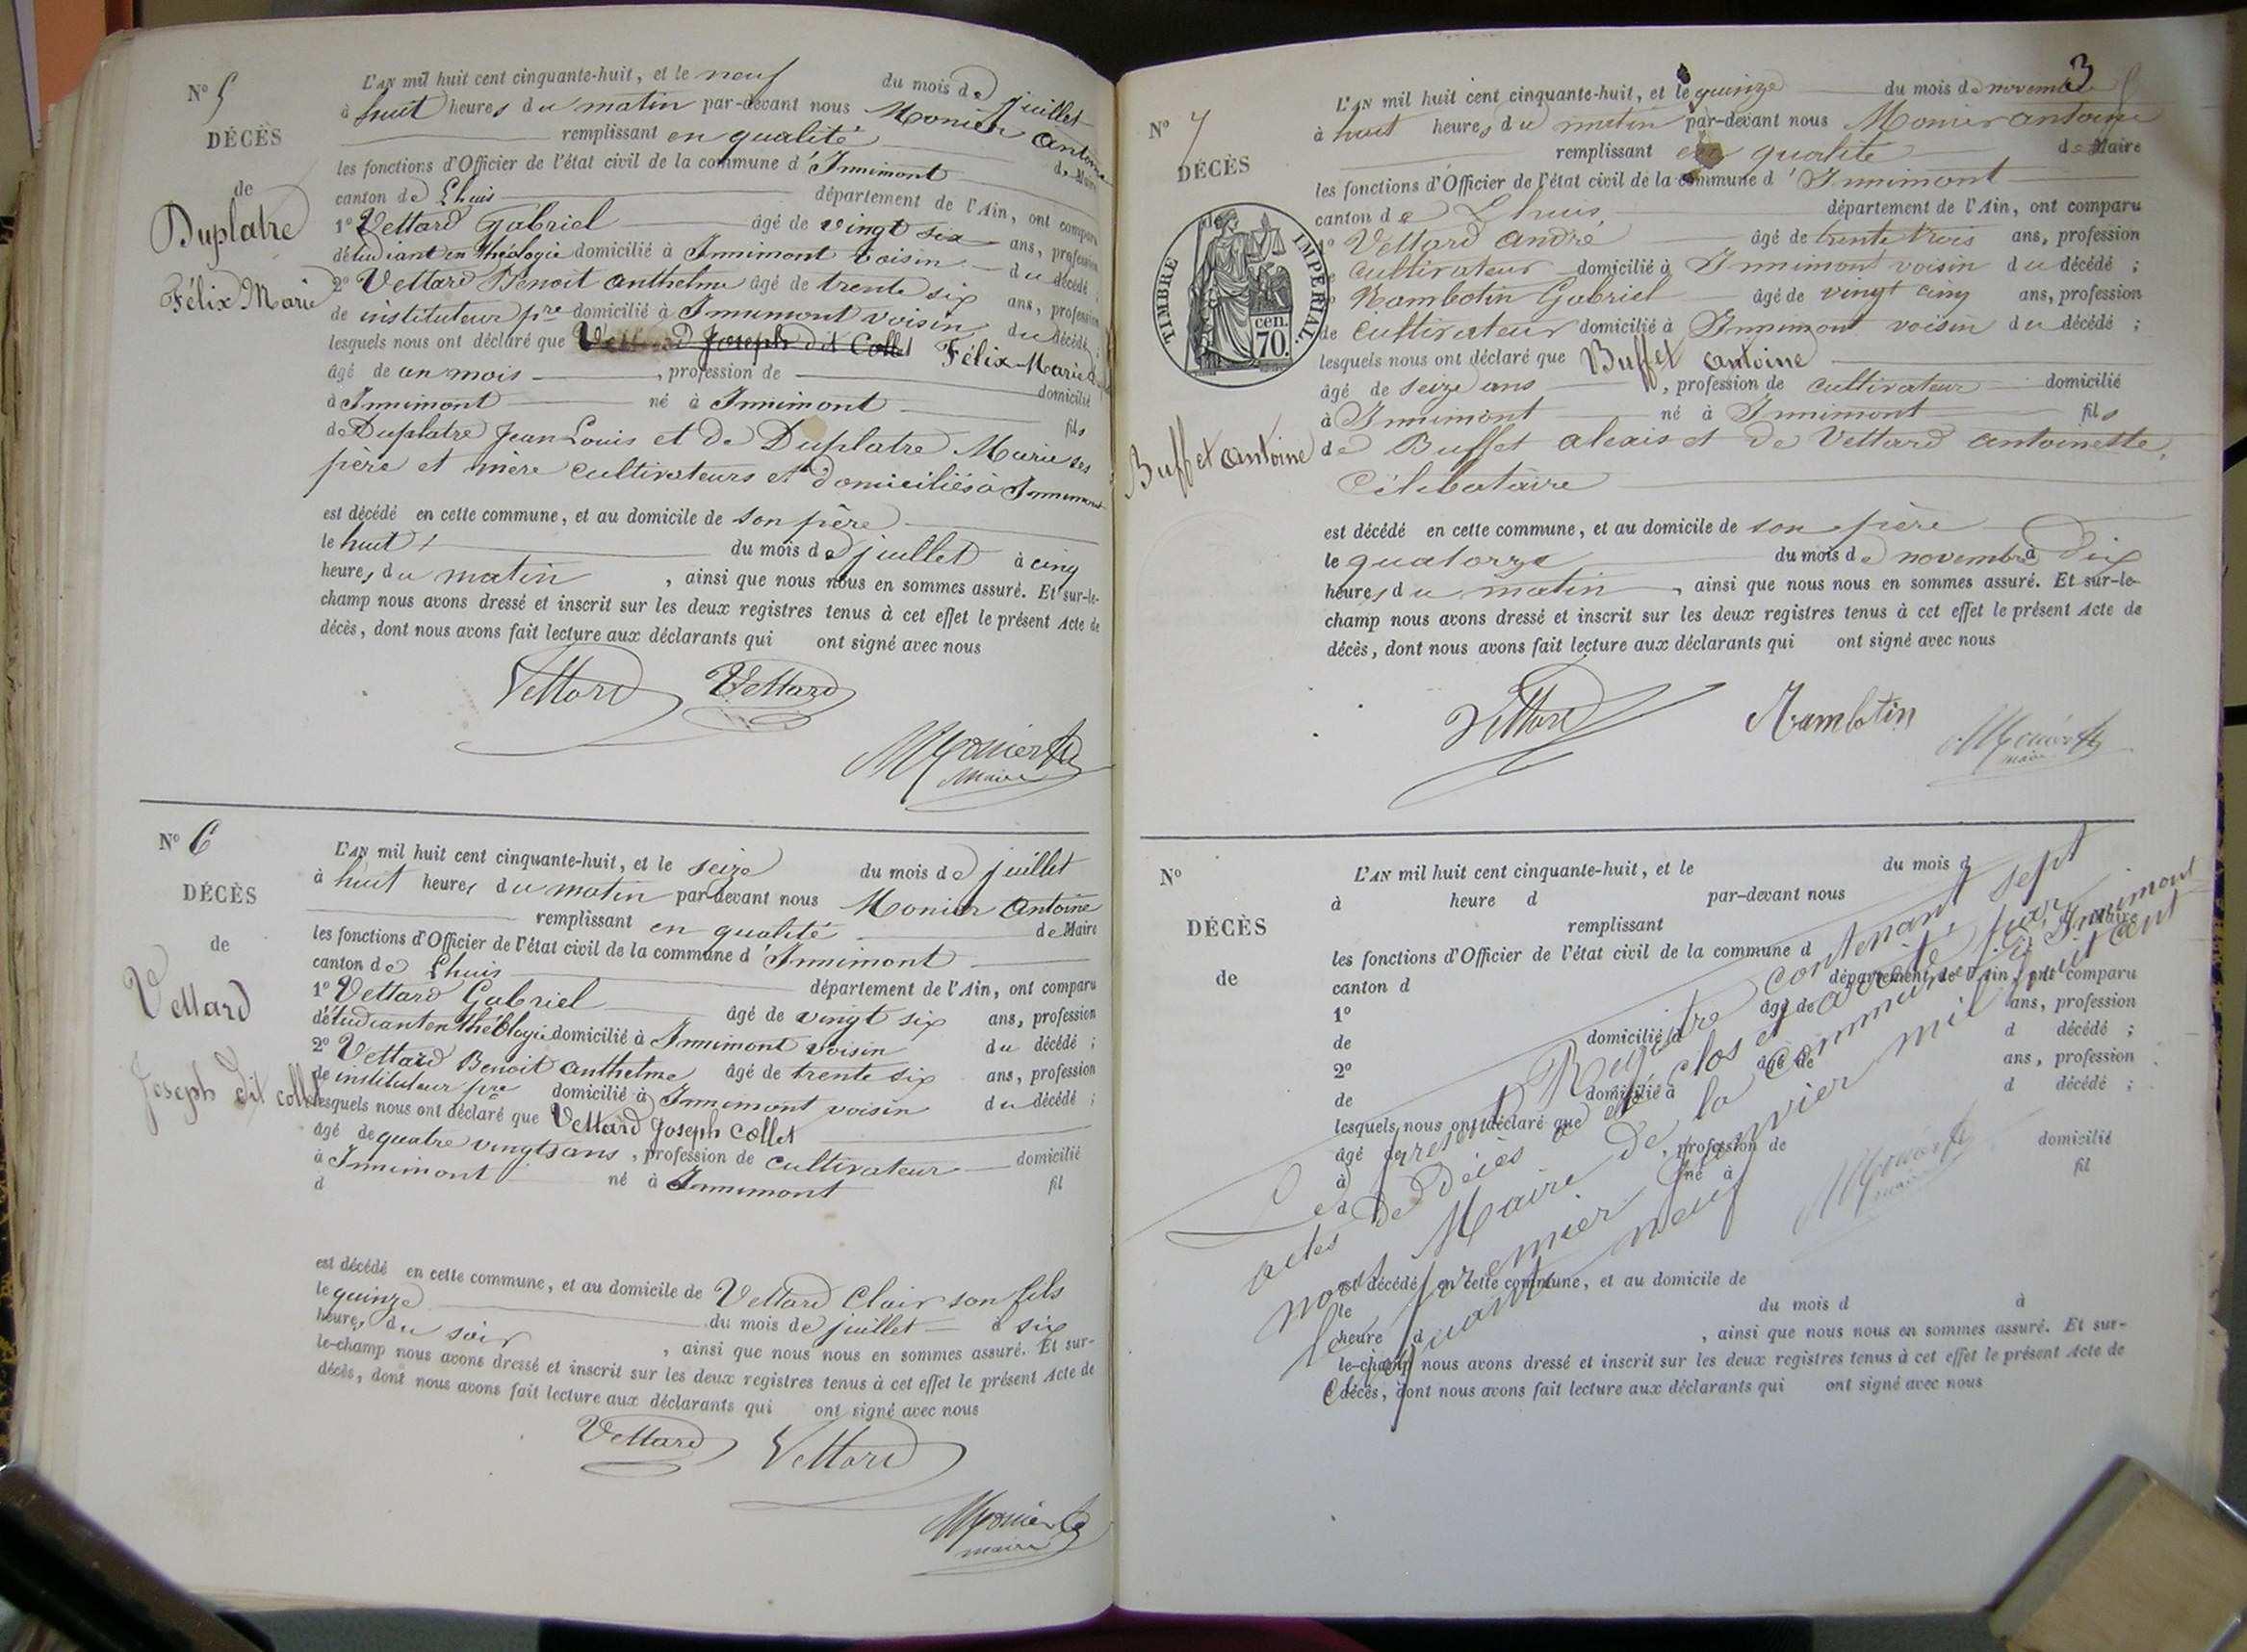 N° 5
DÉCÈS
de
Duplatre
Félix Marie
L'AN mil huit cent cinquante-huit, et le neuf du mois de juillet
à huit heures du matin par-devant nous Monier Antoine
remplissant en qualité de Maire
les fonctions d'Officier de l'état civil de la commune d'Innimont
canton de Lhuis département de l'Ain, ont comparu
1° Vettard Gabriel âgé de vingt six ans, profession
d'étudiant en théologie domicilié à Innimont voisin du décédé ;
2° Vettard Benoit anthelme âgé de trente six ans, profession
de instituteur pre domicilié à Innimont voisin du décédé ;
lesquels nous ont déclaré que Vettard Joseph dit Collet Félix-Marie
âgé de un mois , profession de domicilié
à Innimont né à Innimont fils
de Duplatre Jean Louis et de Duplatre Marie ses
père et mère cultivateurs et domiciliés à Innimont
est décédé en cette commune, et au domicile de son père
le huit du mois de juillet à cinq
heures du matin , ainsi que nous nous en sommes assuré. Et sur-le-
champ nous avons dressé et inscrit sur les deux registres tenus à cet effet le présent Acte de
décès, dont nous avons fait lecture aux déclarants qui ont signé avec nous
Vettard Vettard
Monier
Maire
N° 6
DÉCÈS
de
Vettard
Joseph dit collet
L'AN mil huit cent cinquante-huit, et le seize du mois de juillet
à huit heures du matin par-devant nous Monier Antoine
remplissant en qualité de Maire
les fonctions d'Officier de l'état civil de la commune d'Innimont
canton de Lhuis département de l'Ain, ont comparu
1° Vettard Gabriel âgé de vingt six ans, profession
d'étudiant en théologie domicilié à Innimont voisin du décédé ;
2° Vettard Benoit anthelme âgé de trente six ans, profession
de instituteur pre domicilié à Innimont voisin du décédé ;
lesquels nous ont déclaré que Vettard Joseph Collet
âgé de quatre vingts ans , profession de cultivateur domicilié
à Innimont né à Innimont fil
d
est décédé en cette commune, et au domicile de Vettard Clair son fils
le quinze du mois de juillet à six
heures du soir , ainsi que nous nous en sommes assuré. Et sur-
le-champ nous avons dressé et inscrit sur les deux registres tenus à cet effet le présent Acte de
décès, dont nous avons fait lecture aux déclarants qui ont signé avec nous
Vettard Vettard
Monier
maire
3
N° 7
DÉCÈS
TIMBRE IMPÉRIAL.
cen.
70.
Buffet antoine
L'AN mil huit cent cinquante-huit, et le quinze du mois de novembre
à huit heures du matin par-devant nous Monier antoine
remplissant en qualité de Maire
les fonctions d'Officier de l'état civil de la commune d'Innimont
canton de Lhuis département de l'Ain, ont comparu
1° Vettard andré âgé de trente trois ans, profession
de cultivateur domicilié à Innimont voisin du décédé ;
2° Rambotin Gabriel âgé de vingt cinq ans, profession
de cultivateur domicilié à Innimont voisin du décédé ;
lesquels nous ont déclaré que Buffet antoine
âgé de seize ans , profession de cultivateur domicilié
à Innimont né à Innimont fils
de Buffet alexis et de Vettard antoinette,
Célibataire
est décédé en cette commune, et au domicile de son père
le quatorze du mois de novembre à dix
heures du matin , ainsi que nous nous en sommes assuré. Et sur-le-
champ nous avons dressé et inscrit sur les deux registres tenus à cet effet le présent Acte de
décès, dont nous avons fait lecture aux déclarants qui ont signé avec nous
Vettard Rambotin Monier
maire
N°
DÉCÈS
de
L'AN mil huit cent cinquante-huit, et le du mois d
à heure d par-devant nous
remplissant Maire
les fonctions d'Officier de l'état civil de la commune d
canton d département de l'Ain, ont comparu
1° âgé de ans, profession
de domicilié à d décédé ;
2° âgé de ans, profession
de domicilié à d décédé ;
lesquels nous ont déclaré que
âgé de , profession de domicilié
à né à fil
d
est décédé en cette commune, et au domicile de
le du mois d à
heure d , ainsi que nous nous en sommes assuré. Et sur-
le-champ nous avons dressé et inscrit sur les deux registres tenus à cet effet le présent Acte de
décès, dont nous avons fait lecture aux déclarants qui ont signé avec nous
Le présent Registre contenant sept
actes de décès a été clos et arrêté par
nous Maire de la commune d'Innimont
le premier janvier mil huit cent
cinquante neuf
Monier
maire